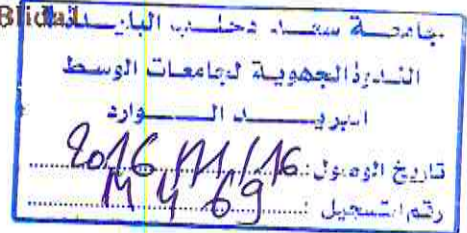 Blida1
جامعة سعد دحلب البليدة
الندوة الجهوية لجامعات الوسط
البريد الوارد
تاريخ الوصول: 2016/11/16
رقم التسجيل: M 4 69